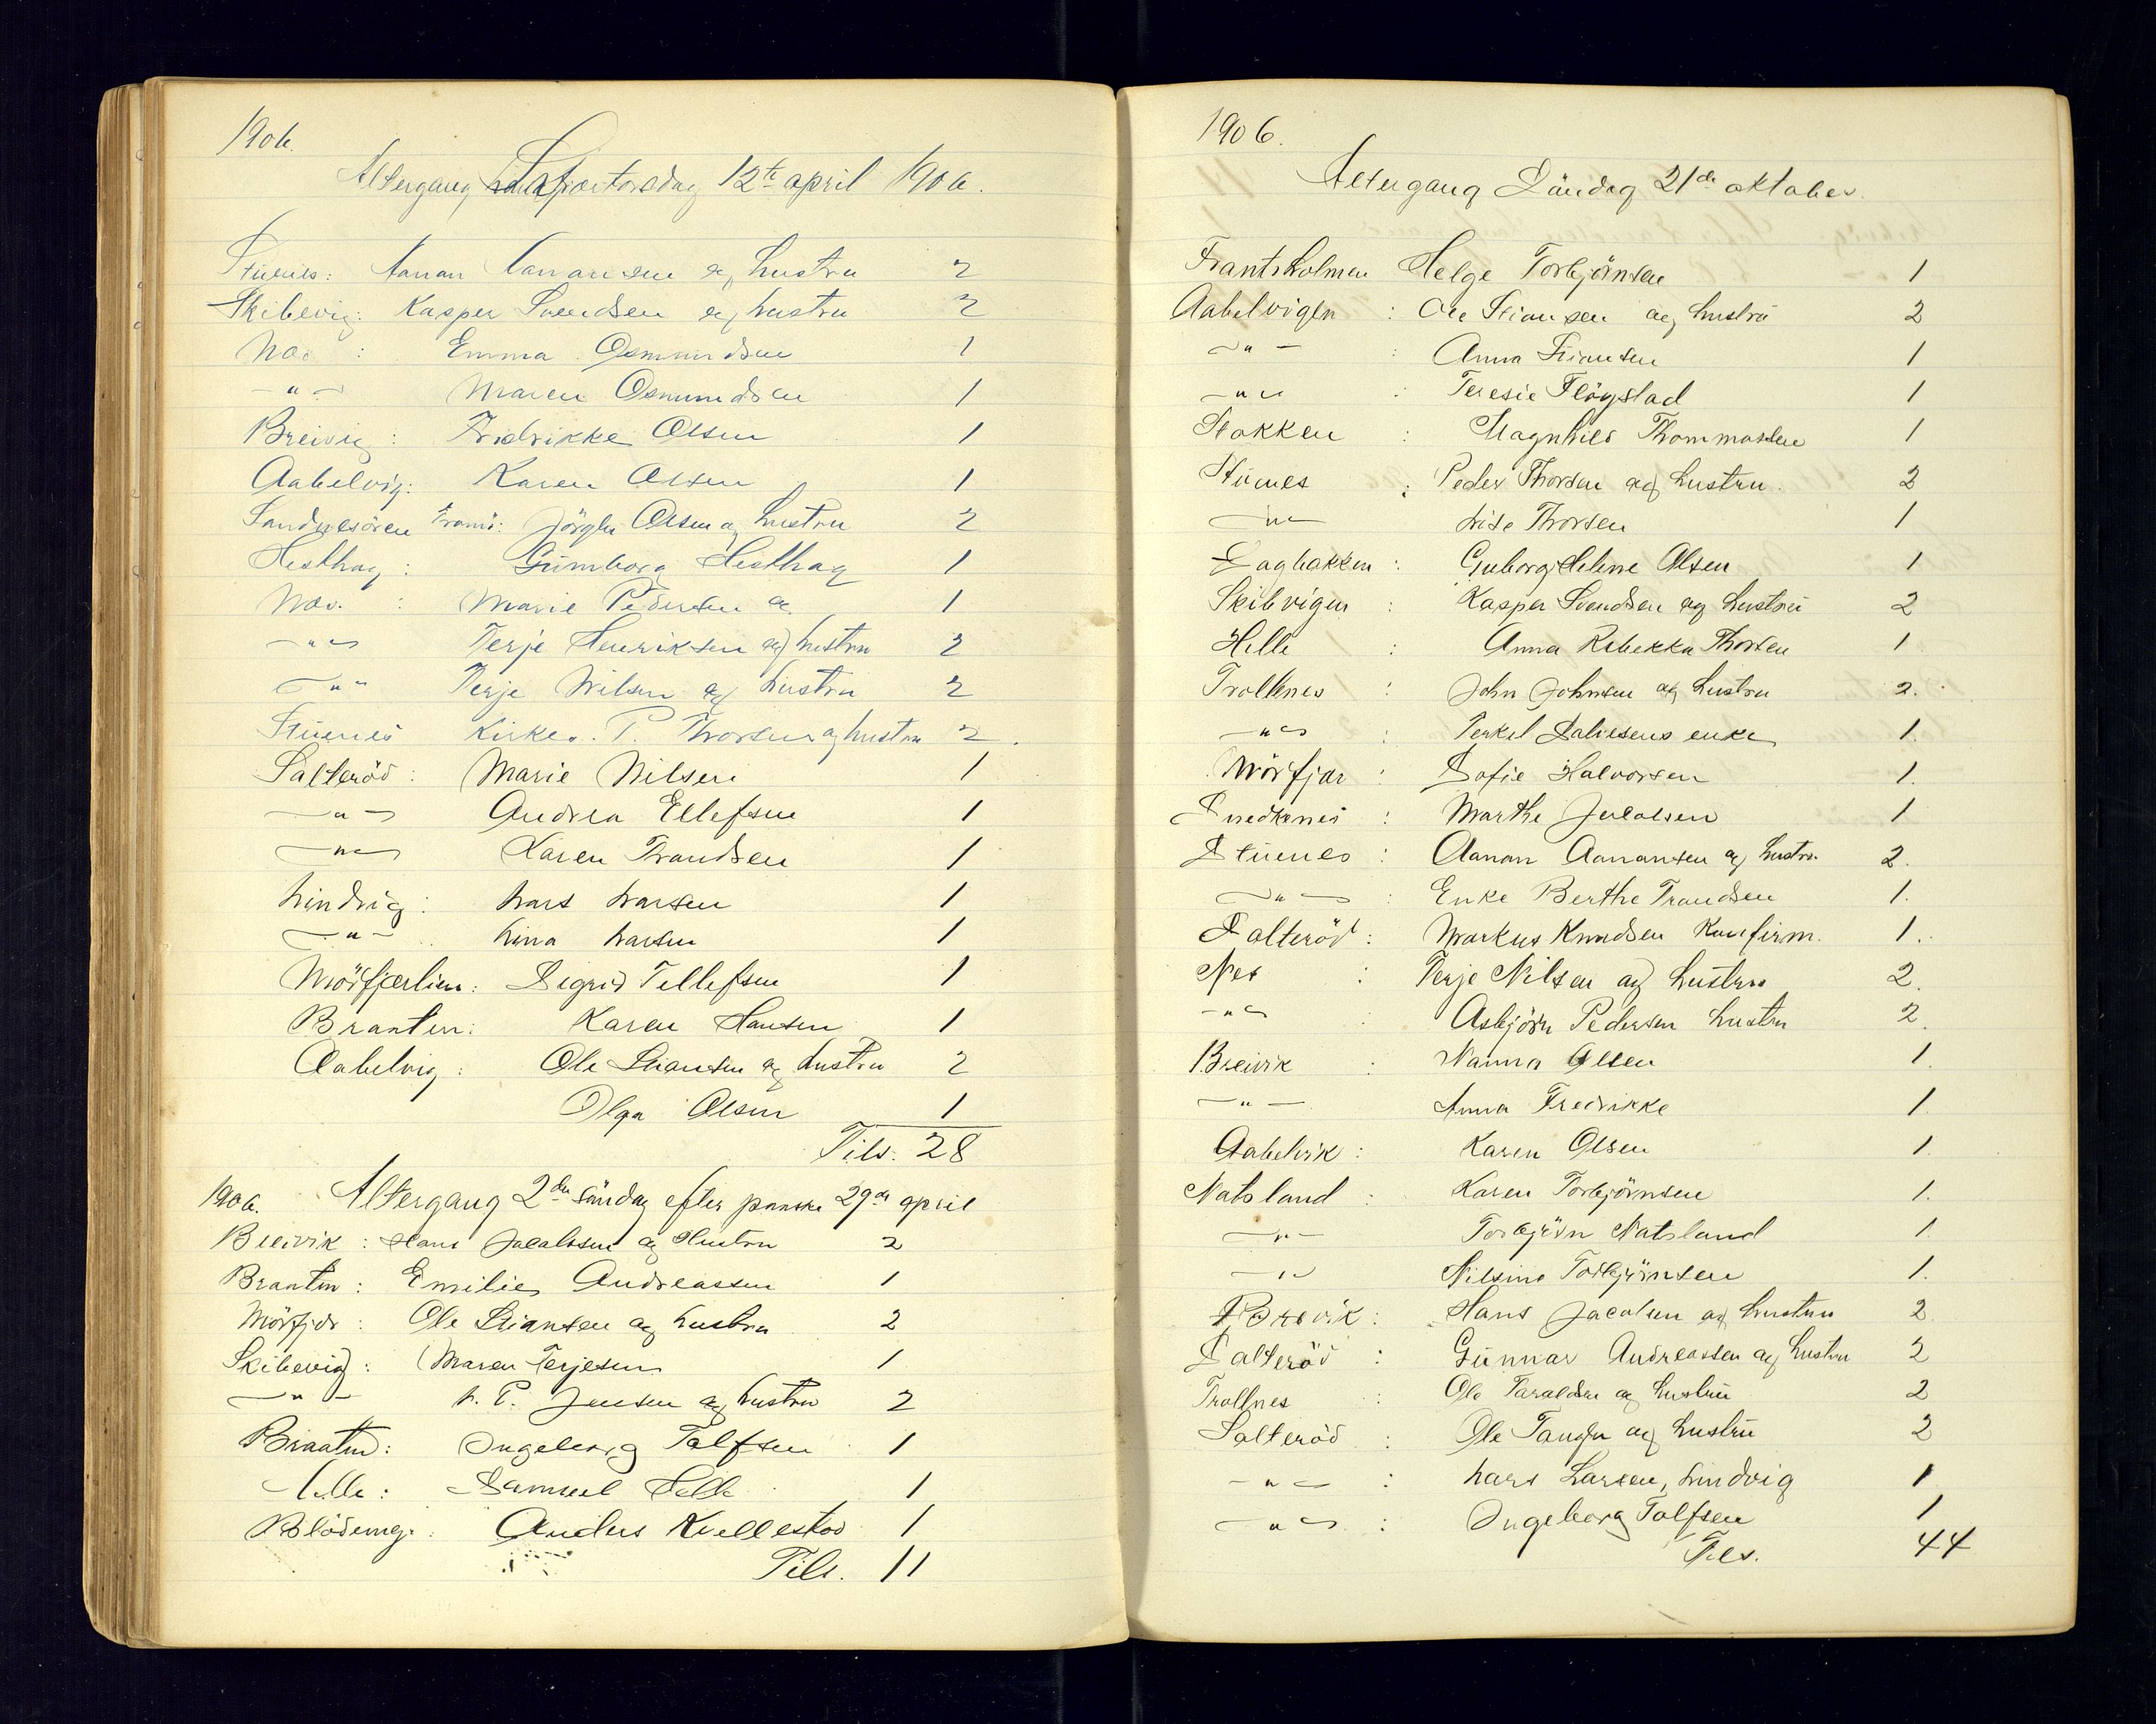 1906.
Altergang Skjærtorsdag 12te april 1906.
Stuenes: Aanon Aanonsen og hustru 2
Skibevig: Kasper Svendsen og hustru 2
Næs : Emma Osmundsen 1
-"- Maren Osmundsen 1
Breivig : Fredrikke Olsen 1
Aabelvig: Karen Olsen 1
Sandnesören Tromö: Jörgen Olsen og hustru 2
Hesthag : Gunnborg Hesthag 1
Næs. : Marie Pedersen og 1
-"- Terje Henriksen og hustru 2
-"- Terje Nilsen og hustru 2
Stuenes Kirkes. P. Thorsen og hustru 2.
Salteröd : Marie Nilsen 1
-"- Andrea Ellefsen 1
-"- Karen Trondsen 1
Lindvig : Lars Larsen 1
-"- Lina Larsen 1
Mörfjærlien: Sigrid Tellefsen 1
Braaten: Karen Hansen 1
Aabelvig : Ole Stiansen og hustru 2
Olga Olsen 1
Tils. 28
1906. Altergang 2den söndag efter paaske 29de april
Breivik : Hans Jacobsen og Hustru 2
Braaten : Emilie Andreassen 1
Mörfjær : Ole Stiansen og hustru 2
Skibevig : Maren Terjesen 1
-"- L. P. Jensen og hustru 2
Braaten : Ingeborg Tolfsen 1
Helle : Samuel Helle 1
Blödeng: Anders Kvellestad 1
Tils. 11
1906.
Altergang Söndag 21de oktober.
Frantsholmen Helge Torbjörnsen 1
Aabelvigen : Ole Stiansen og hustru 2
-"- : Anna Stiansen 1
-"- : Teresie Flögstad 1
Stokken : Magnhild Thommassen 1
Stuenes : Peder Thorsen og hustru. 2
-"- Lise Thorsen 1
Dagbakken : Guborg Helene Olsen 1
Skibvigen : Kasper Svendsen og hustru 2
Helle : Anna Rebekka Thorsen 1
Trollnes : John Johnsen og hustru 2.
-"- : Terkel Salvesens enke 1.
Mörfjær : Sofie Halvorsen 1.
Snedkenes : Marthe Jacobsen 1
Stuenes : Aanon Aanonsen og hustru. 2.
-"- : Enke Berthe Trondsen 1.
Salteröd : Markus Knudsen Konfirm. 1.
Nes : Terje Nilsen og hustru 2.
-"- : Asbjörn Pedersen hustru 2.
Breivik : Nanna Olsen 1.
-"- Anna Fredrikke 1.
Aabelvik : Karen Olsen 1.
Natsland : Karen Torbjörnsen 1.
-"- Torbjörn Natsland 1.
-"- Nilsine Torbjörnsen 1.
Brevik : Hans Jacobsen og hustru 2.
Salteröd : Gunnar Andreassen og hustru 2
Trollnes : Ole Taraldsen og hustru 2
Salteröd : Ole Tangen og hustru 2
-"- : Lars Larsen, Lindvig 1
-"- : Ingeborg Tolfsen 1
Tils. 44